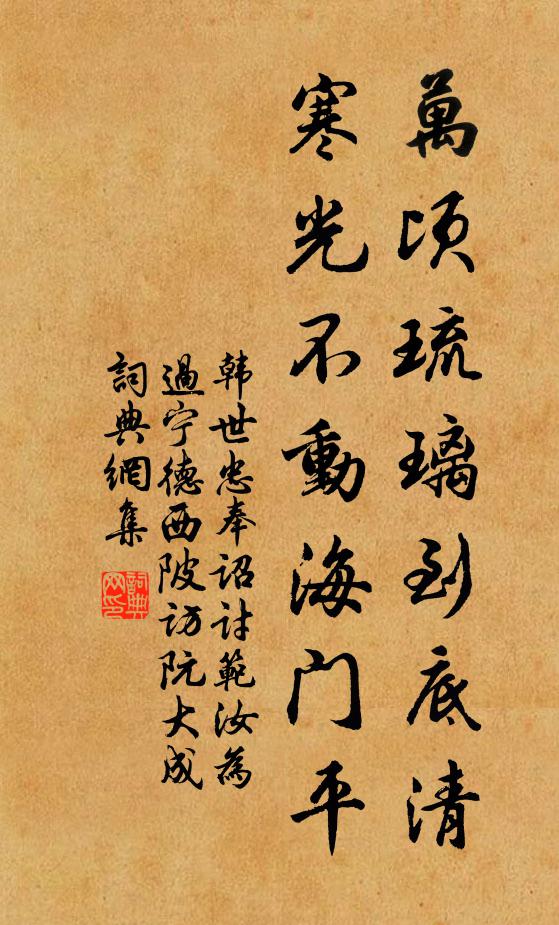 萬頃琉璃到底清
寒光不動海门平
韩世忠奉诏讨範汝為
過宁德西陂访阮大成
詞典網集
詞典
网印